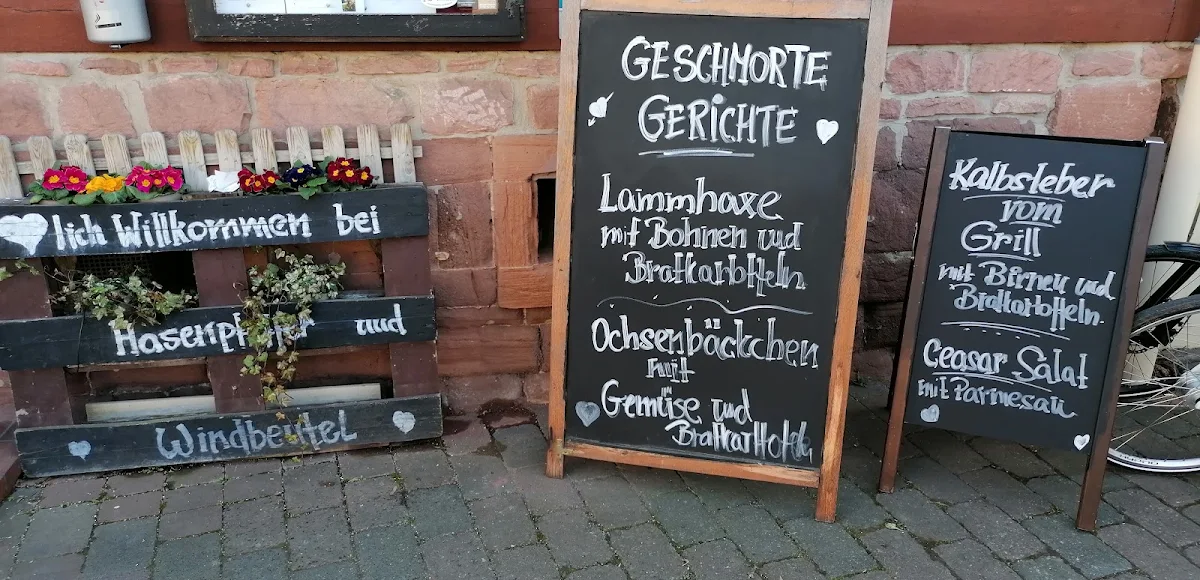 lich Willkommen bei
Hasenpfeffer und
Windbeutel
GESCHMORTE
GERICHTE
Lammhaxe
mit Bohnen und
Bratkartoffeln
Ochsenbäckchen
mit
Gemüse und
Bratkartoffeln
Kalbsleber
vom
Grill
mit Birnen und
Bratkartoffeln.
Ceasar Salat
mit Parmesan